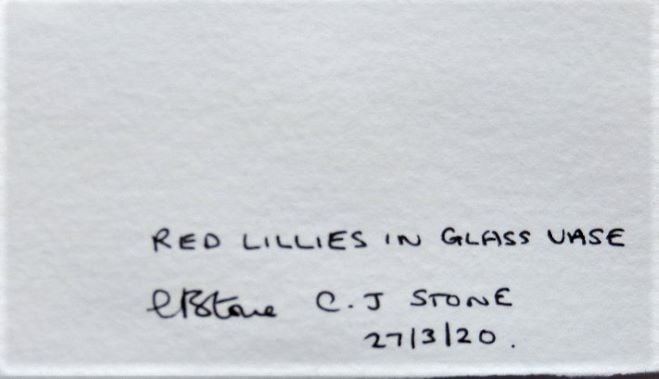 RED LILLIES IN GLASS VASE
C.J STONE
27/3/20.